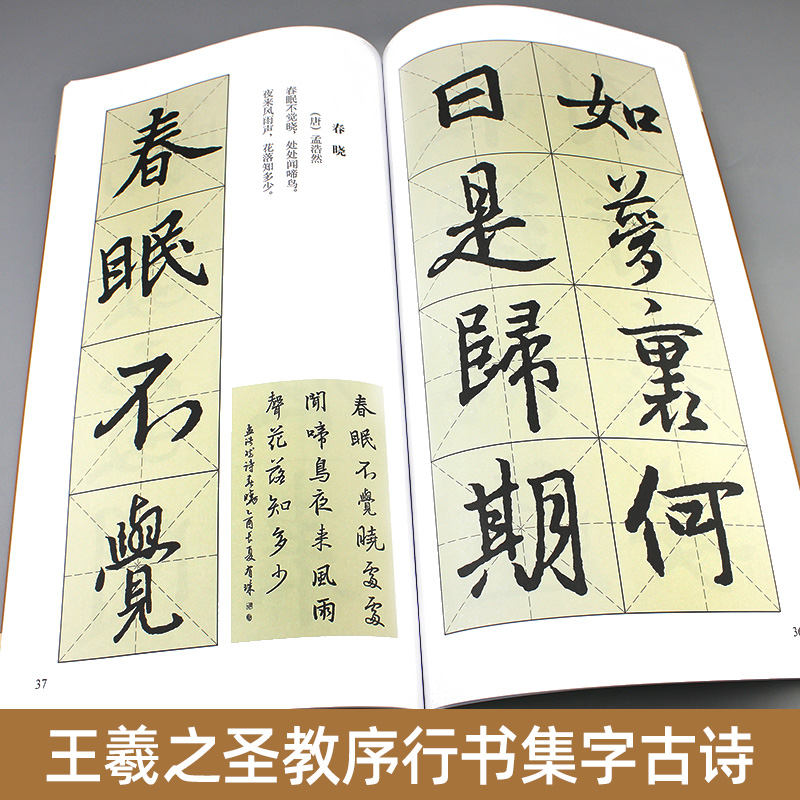 如夢裏何
日是歸期
春晓
(唐)孟浩然
春眠不觉晓，处处闻啼鸟。
夜来风雨声，花落知多少。
春眠不覺曉處處
聞啼鳥夜来風雨
聲花落知多少
孟浩然诗春曉乙酉長夏有珠
春眠不覺
37
王羲之圣教序行书集字古诗